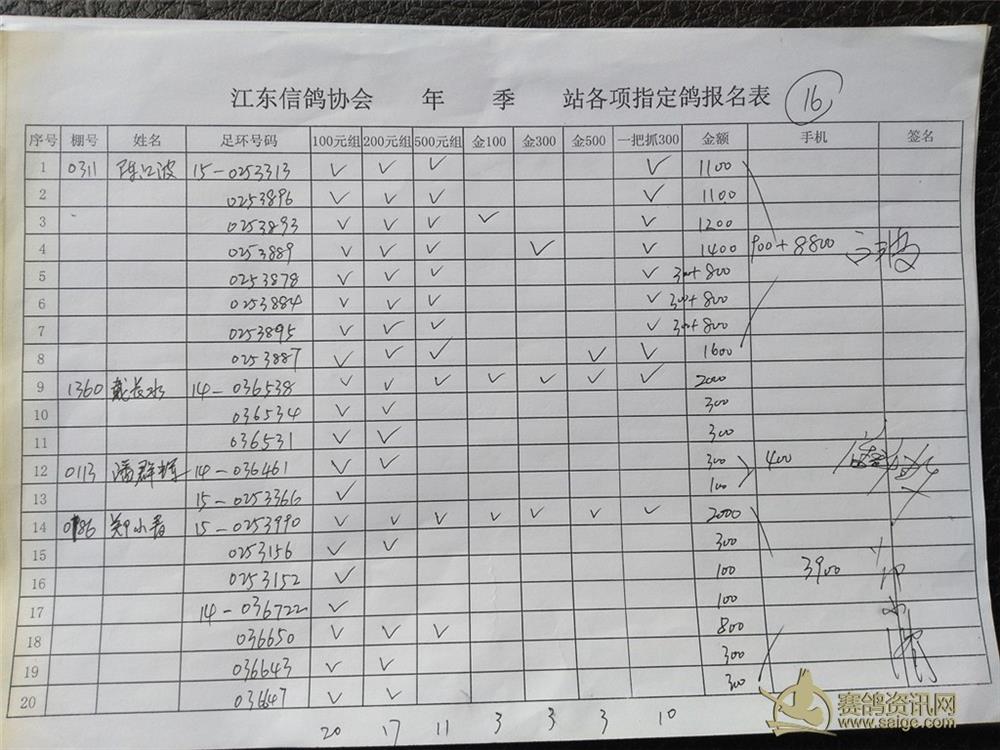 江东信鸽协会 年 季 站各项指定鸽报名表 16
序号 棚号 姓名 足环号码 100元组 200元组 500元组 金100 金300 金500 一把抓300 金额 手机 签名
1 0311 陈江波 15-0253313 ✓ ✓ ✓ ✓ 1100
2 0253896 ✓ ✓ ✓ ✓ 1100
3 0253893 ✓ ✓ ✓ ✓ ✓ 1200
4 0253889 ✓ ✓ ✓ ✓ ✓ 1400 900+8800
5 0253878 ✓ ✓ ✓ ✓ 300+800
6 0253884 ✓ ✓ ✓ ✓ 300+800
7 0253895 ✓ ✓ ✓ ✓ 300+800
8 0253887 ✓ ✓ ✓ ✓ ✓ 1600
9 1360 戴长水 14-036538 ✓ ✓ ✓ ✓ ✓ ✓ ✓ 2000
10 036534 ✓ ✓ 300
11 036531 ✓ ✓ 300
12 0113 潘群辉 14-036461 ✓ ✓ 300 400
13 15-0253366 ✓ 100
14 0186 郑小春 15-0253990 ✓ ✓ ✓ ✓ ✓ ✓ ✓ 2000
15 0253156 ✓ ✓ 300
16 0253152 ✓ 100 3900
17 14-036722 ✓ 100
18 036650 ✓ ✓ ✓ 800
19 036643 ✓ ✓ 300
20 03647 ✓ ✓ 300
20 17 11 3 3 3 10
赛鸽资讯网
www.saige.com